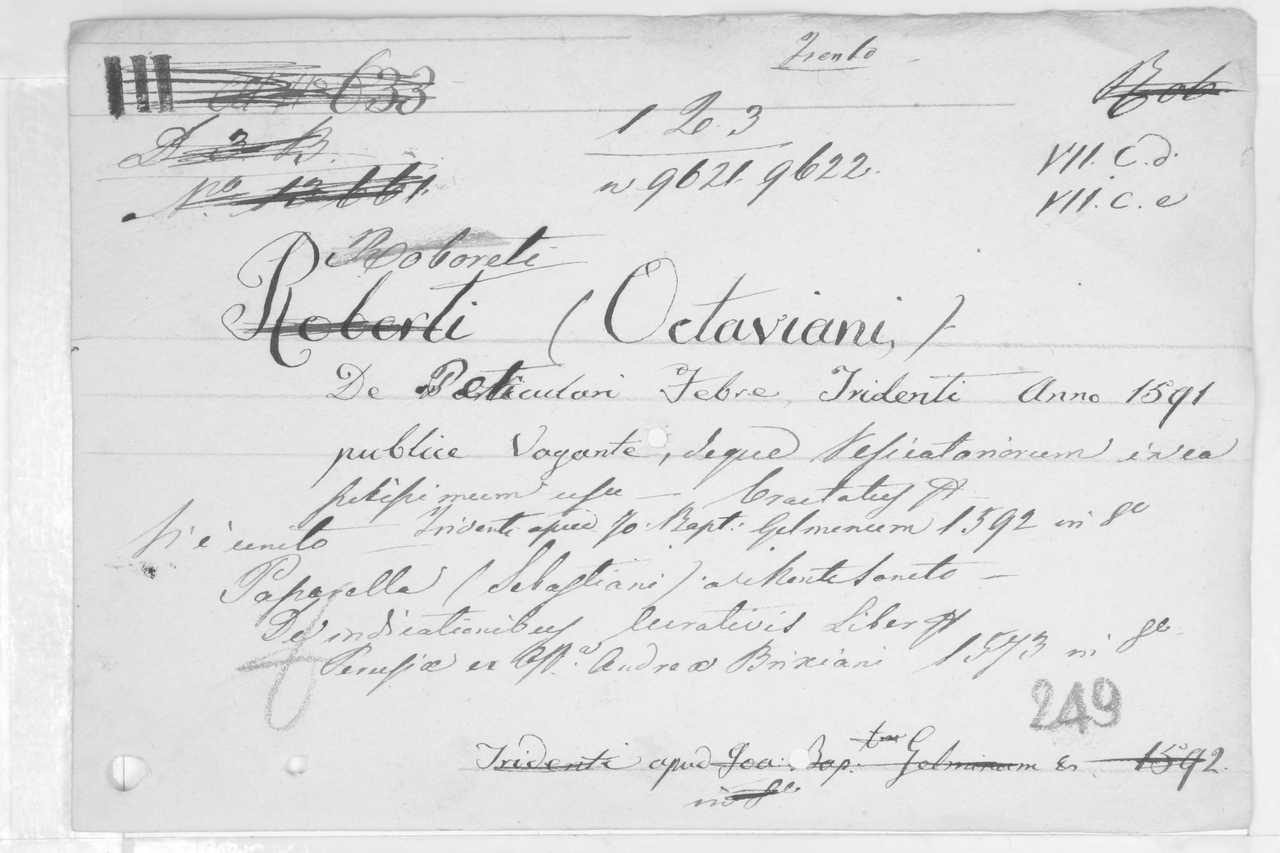 Trento
III 633
Rob
1 2. 3
A 3 B.
VII. C. d.
n 9621. 9622.
Nº 12661.
VII. C. e
Roboreti
Roberti (Octaviani,)
De Peticulari Febre Tridenti Anno 1591
publice Vagante, deque Vesicatoriorum in ea
potissimum usu — Tractatus
Tridenti apud Jo: Bapt: Gelminum 1592 in 8º
Vi è unito
Paparella (Sebastiani) a Monte Sancto —
De indicationibus Curativis Liber
Perusiæ ex Off.ª Andreæ Brixiani 1573 in 8º
249
Tridenti apud Joa: Bap: tam Gelminum 1592.
in 8º